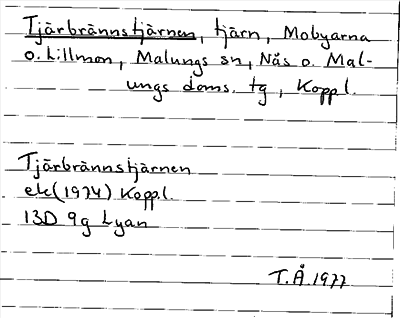 Tjärbrännstjärnen, tjärn, Mobyarna
o. Lillmon, Malungs sn, Nås o. Mal-
ungs doms. tg, Koppl.
Tjärbrännstjärnen
ek (1974) Koppl.
13D 9g Lyan
T.Å. 1977